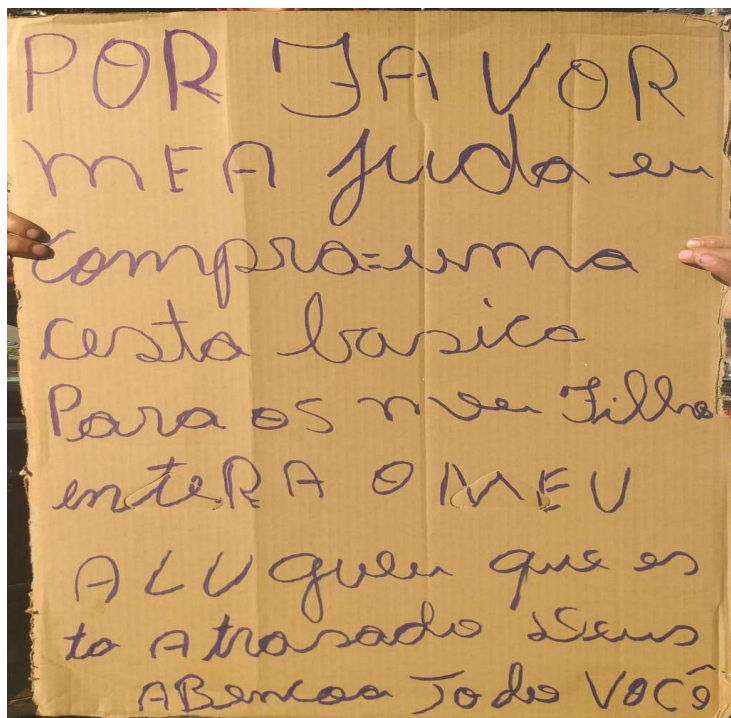 POR FAVOR
MEA juda eu
compra=uma
cesta basica
Para os meu Filho
enteRA O MEU
ALUgueu que es
ta Atrasado Deus
ABencoa Todos VOCÊ